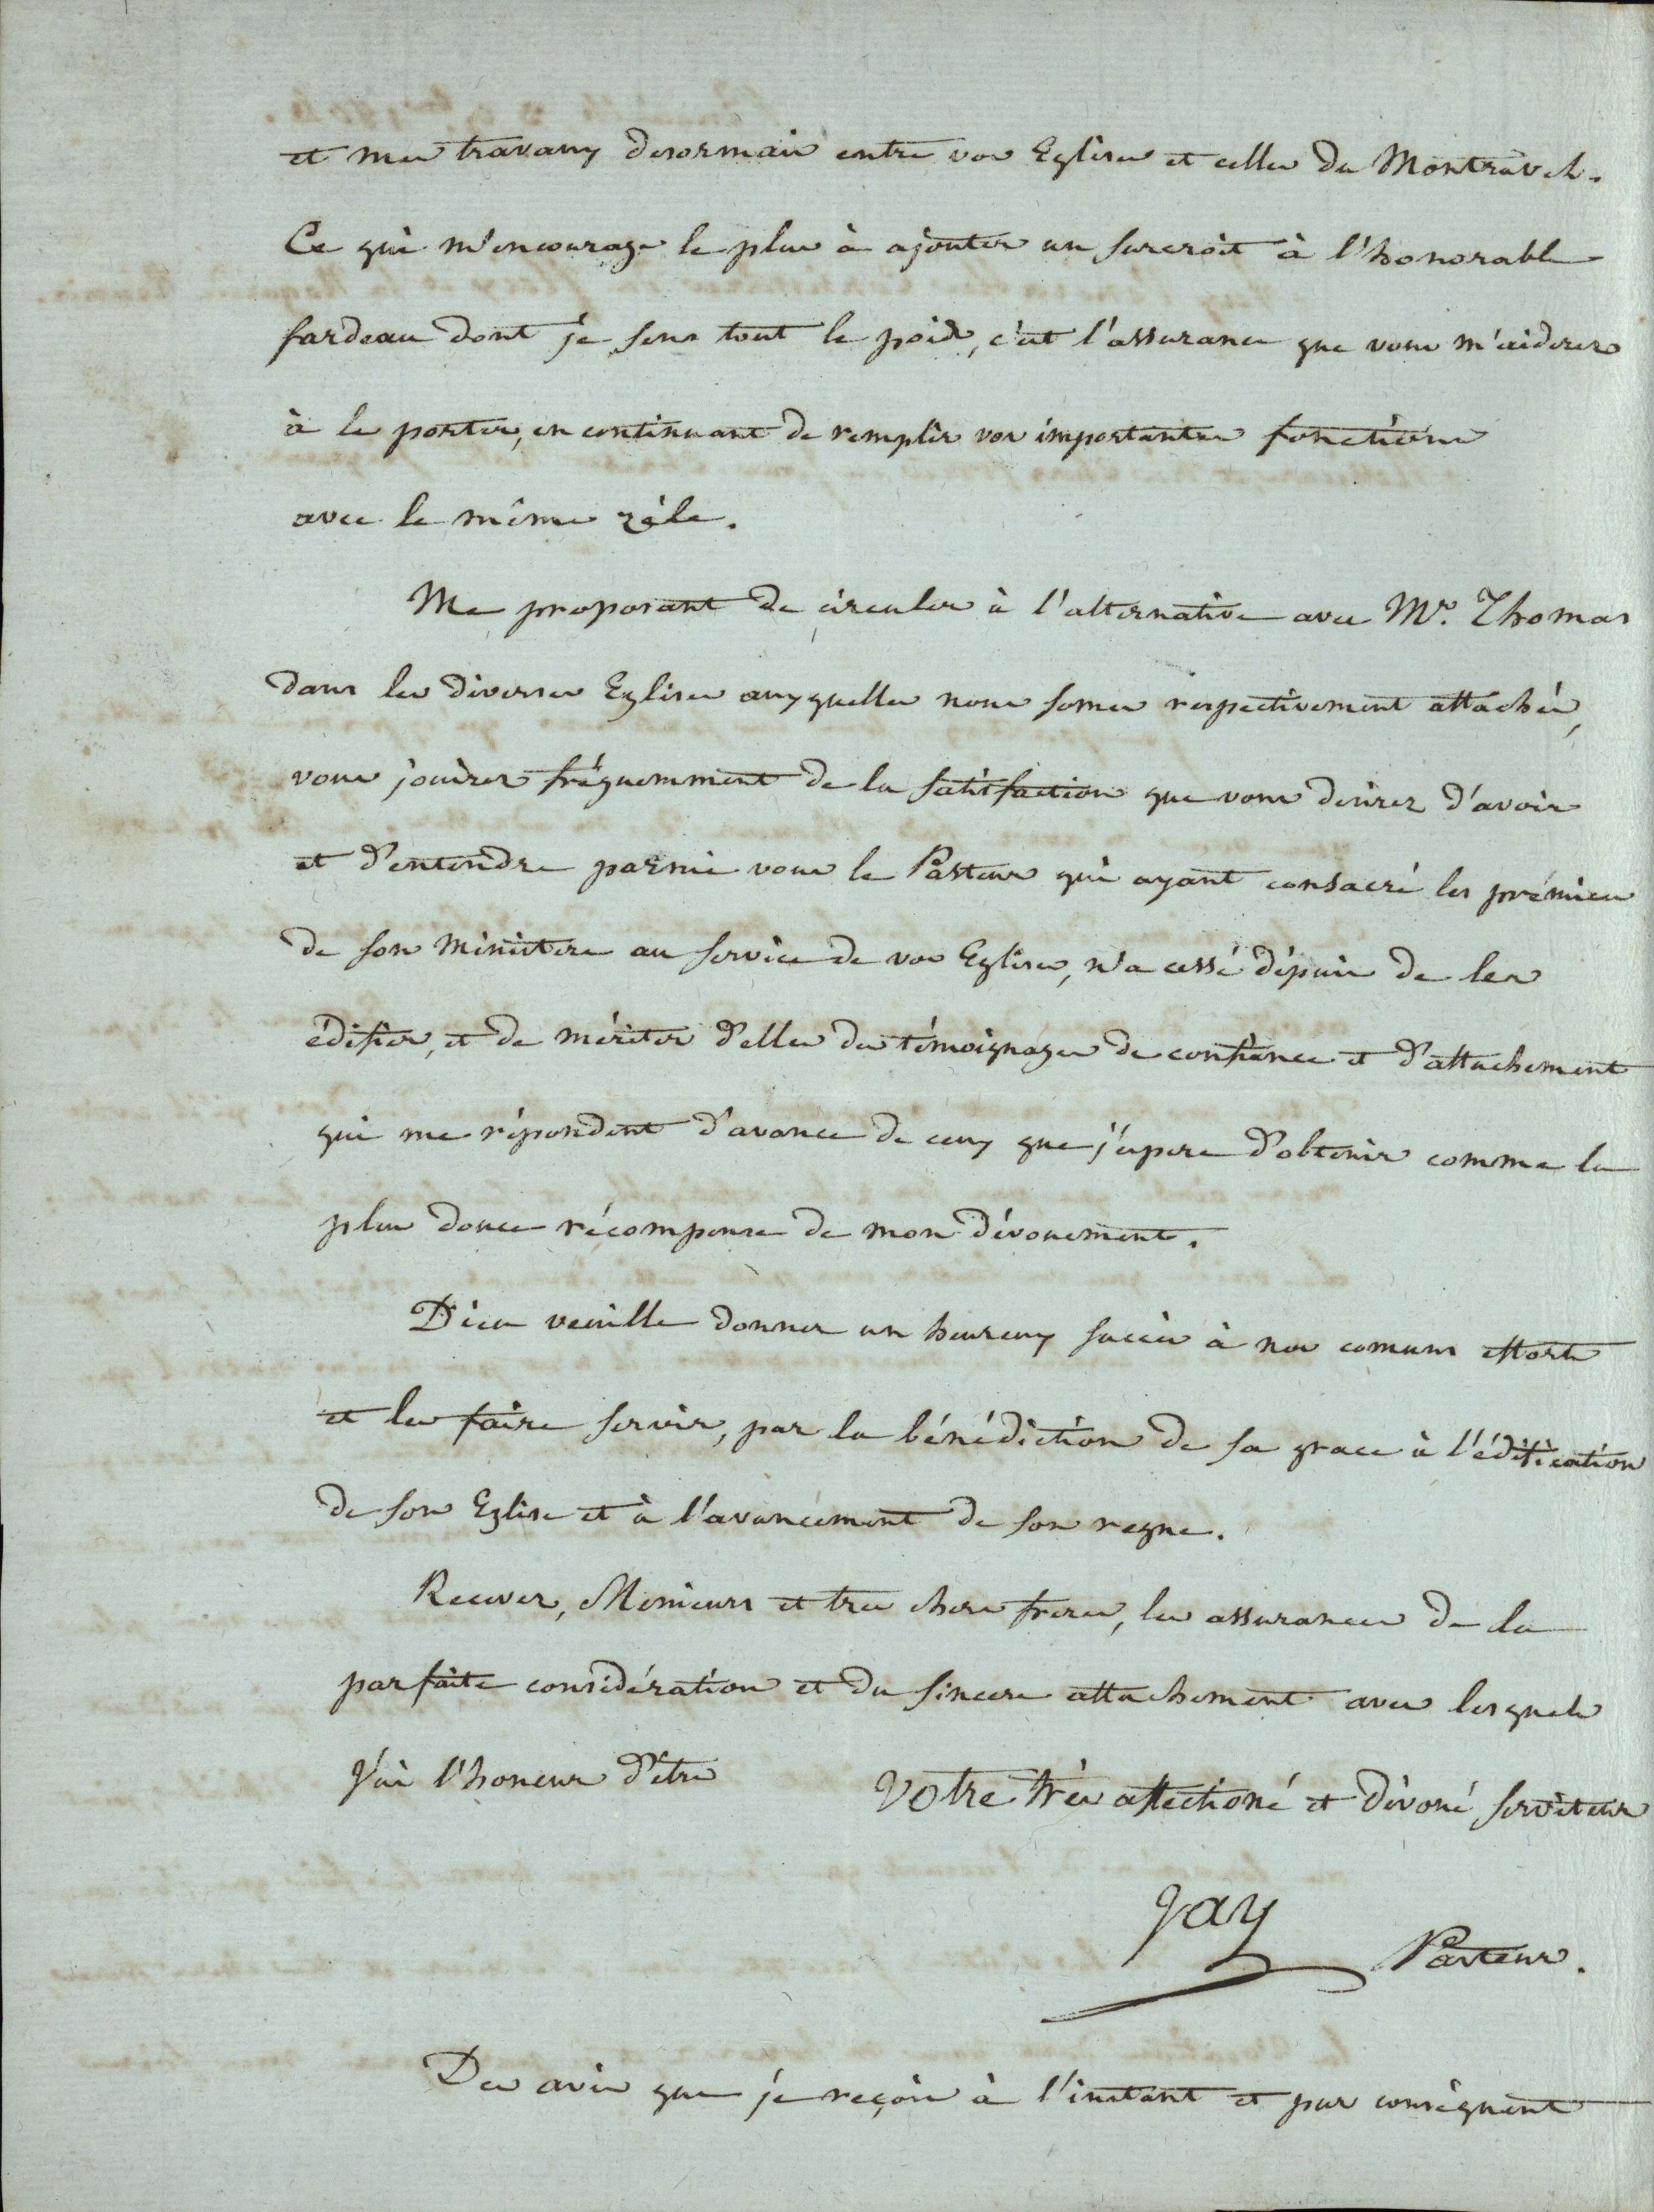 et mes travaux desormais entre vos Eglises et celles du Montravel.
Ce qui m'encourage le plus à ajouter un surcroit à l'honorable
fardeau dont je sens tout le poids, c'est l'assurance que vous m'aiderez
à le porter, en continuant de remplir vos importantes fonctions
avec le même zèle.
Me proposant de circuler à l'alternative avec Mr. Thomas
dans les diverses Eglises auxquelles nous somes respectivement attachés,
vous jouirez fréquemment de la satisfaction que vous desirez d'avoir
et d'entendre parmi vous le Pasteur qui ayant consacré les prémices
de son Ministere au service de vos Eglises, n'a cessé dépuis de les
édifier, et de mériter d'elles des témoignages de confiance et d'attachement
qui me répondent d'avance de ceux que j'espere d'obtenir comme la
plus douce récompense de mon dévouement.
Dieu veuille donner un heureux succès à nos comuns efforts
et les faire servir, par la bénédiction de sa grace à l'édification
de son Eglise et à l'avancement de son regne.
Recevez, Messieurs et tres chers freres, les assurances de la
parfaite considération et du sincere attachement avec lesquels
J'ai l'honeur d'être Votre très affectioné et dévoué serviteur
Jay Pasteur.
Des avis que je reçois à l'instant et par conséquent